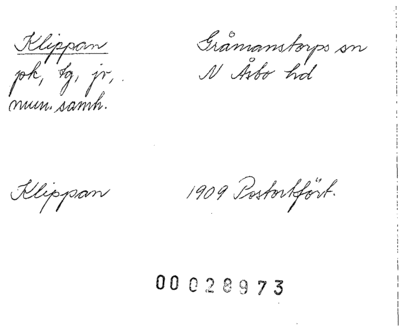 Klippan Gråmanstorps sn
pk, tg, jv, N Åsbo hd
mun. samh.
Klippan 1909 Postortfört.
00028973